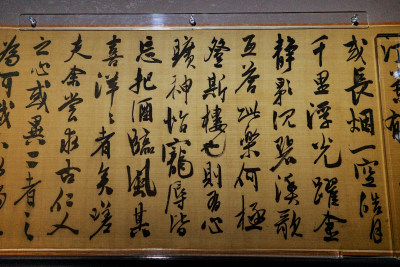 或長煙一空皓月
千里浮光躍金
静影沉璧漁歌
互答此樂何極
登斯樓也則有心
曠神怡寵辱皆
忘把酒臨風其
喜洋々者矣嗟
夫余嘗求古仁人
之心或異二者之
為何哉不以物